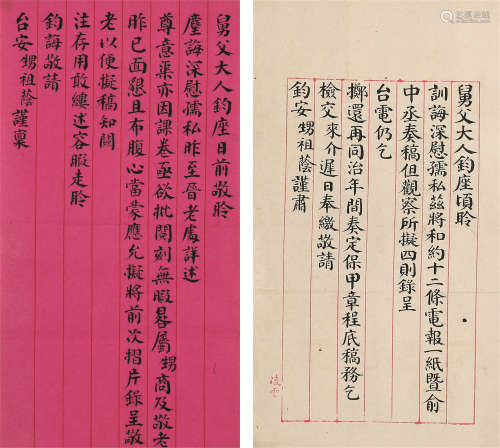 舅父大人鈞座日前敬聆
麈誨深慰孺私昨至晉老處詳述
尊意渠亦因課卷亟欲批閱刻無暇晷屬甥商及敬老
昨已面懇且布腹心當蒙應允擬將前次摺片錄呈敬
老以便擬稿知關
注存用敢縷述容暇走聆
鈞誨敬請
台安甥祖蔭謹稟
舅父大人鈞座頃聆
訓誨深慰孺私茲將和約十二條電報一紙暨俞
中丞奏稿但觀察所擬四則錄呈
台電仍乞
擲還再同治年間奏定保甲章程底稿務乞
檢交來介遲日奉繳敬請
鈞安甥祖蔭謹肅